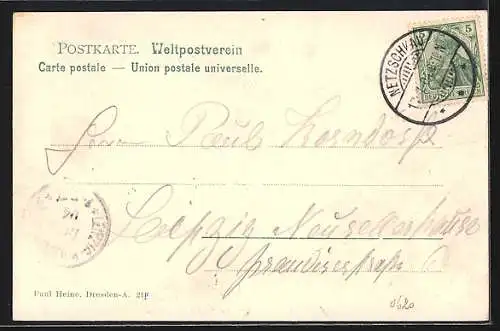 POSTKARTE. Weltpostverein
Carte postale — Union postale universelle.
5
NETZSCHKAU
Herrn Paul Korndorf
Leipzig Neusellerhausen
6
LEIPZIG
Paul Heine, Dresden-A. 21